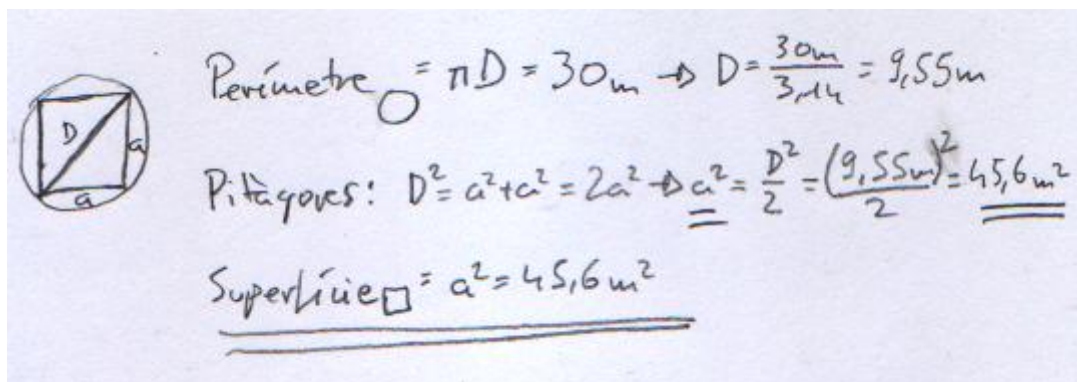 Perímetre○ = πD = 30m → D = 30m/3,14 = 9,55m
D a a
Pitàgores: D² = a²+a² = 2a² → a² = D²/2 = (9,55m)²/2 = 45,6m²
Superfície□ = a² = 45,6m²